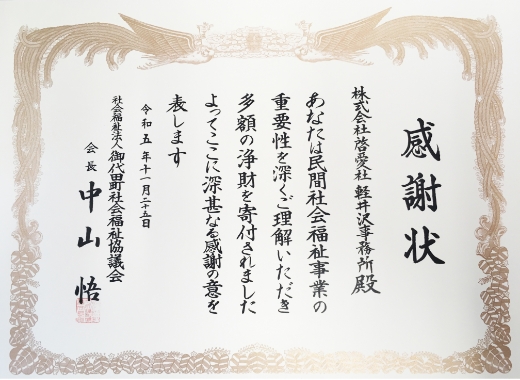 感謝状
株式会社啓愛社 軽井沢事務所 殿
あなたは民間社会福祉事業の
重要性を深くご理解いただき
多額の浄財を寄付されました
よってここに深甚なる感謝の意を
表します
令和五年十一月二十五日
社会福祉法人 御代田町社会福祉協議会
会長 中山 悟